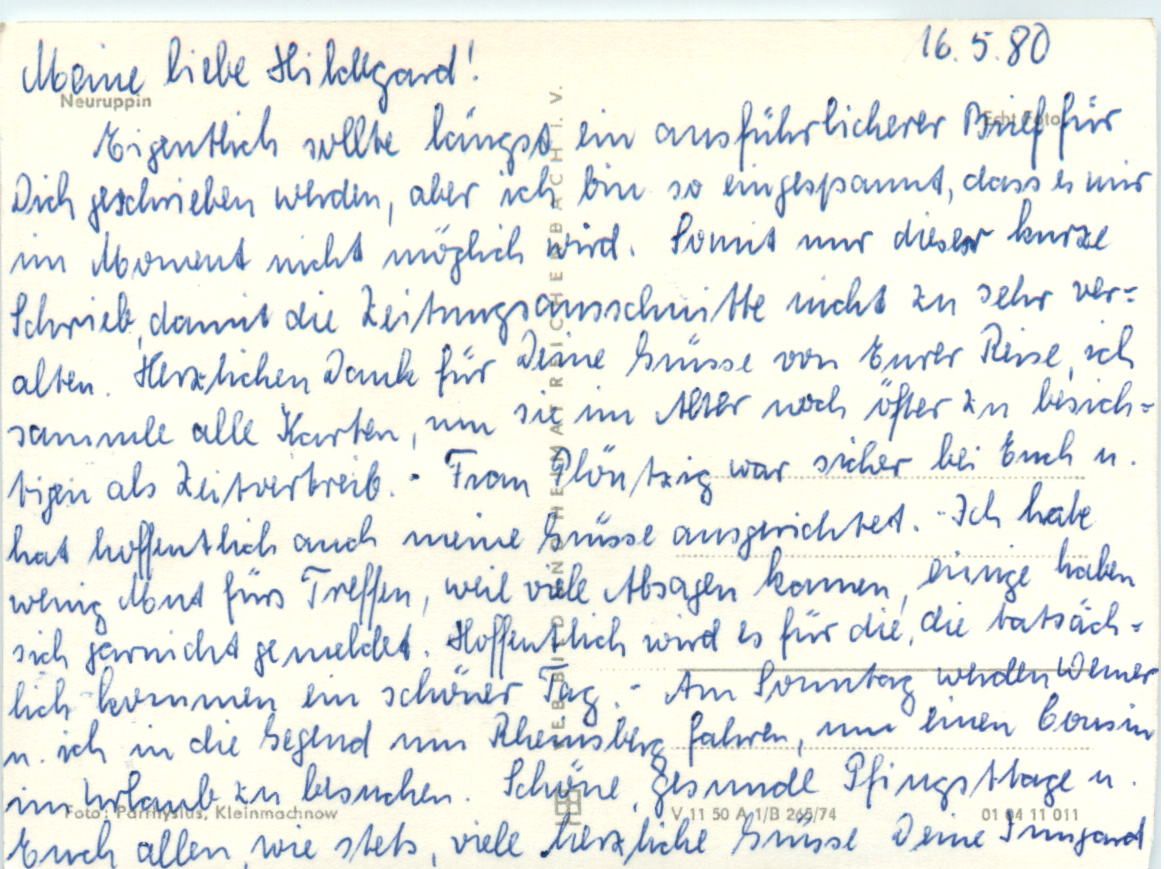 16.5.80
Meine liebe Hildegard!
Neuruppin
Echt Foto
Eigentlich sollte längst ein ausführlicherer Brief für
Dich geschrieben werden, aber ich bin so eingespannt, dass es mir
im Moment nicht möglich wird. Somit nur dieser kurze
Schrieb, damit die Zeitungsausschnitte nicht zu sehr ver=
alten. Herzlichen Dank für Deine Grüsse von Eurer Reise, ich
sammle alle Karten, um sie im Alter noch öfter zu besich=
tigen als Zeitvertreib. - Frau Plöntzig war sicher bei Euch u.
hat hoffentlich auch meine Grüsse ausgerichtet. - Ich habe
wenig Mut fürs Treffen, weil viele Absagen kamen, einige haben
sich garnicht gemeldet. Hoffentlich wird es für die, die tatsäch=
lich kommen ein schöner Tag. - Am Sonntag werden Werner
u. ich in die Gegend um Rheinsberg fahren, um einen Cousin
im Urlaub zu besuchen. Schöne, gesunde Pfingsttage u.
Foto: Parrhysius, Kleinmachnow
V 11 50 A 1/B 265/74
01 04 11 011
Euch allen, wie stets, viele herzliche Grüsse Deine Irmgard
REICHENBACH I. V.